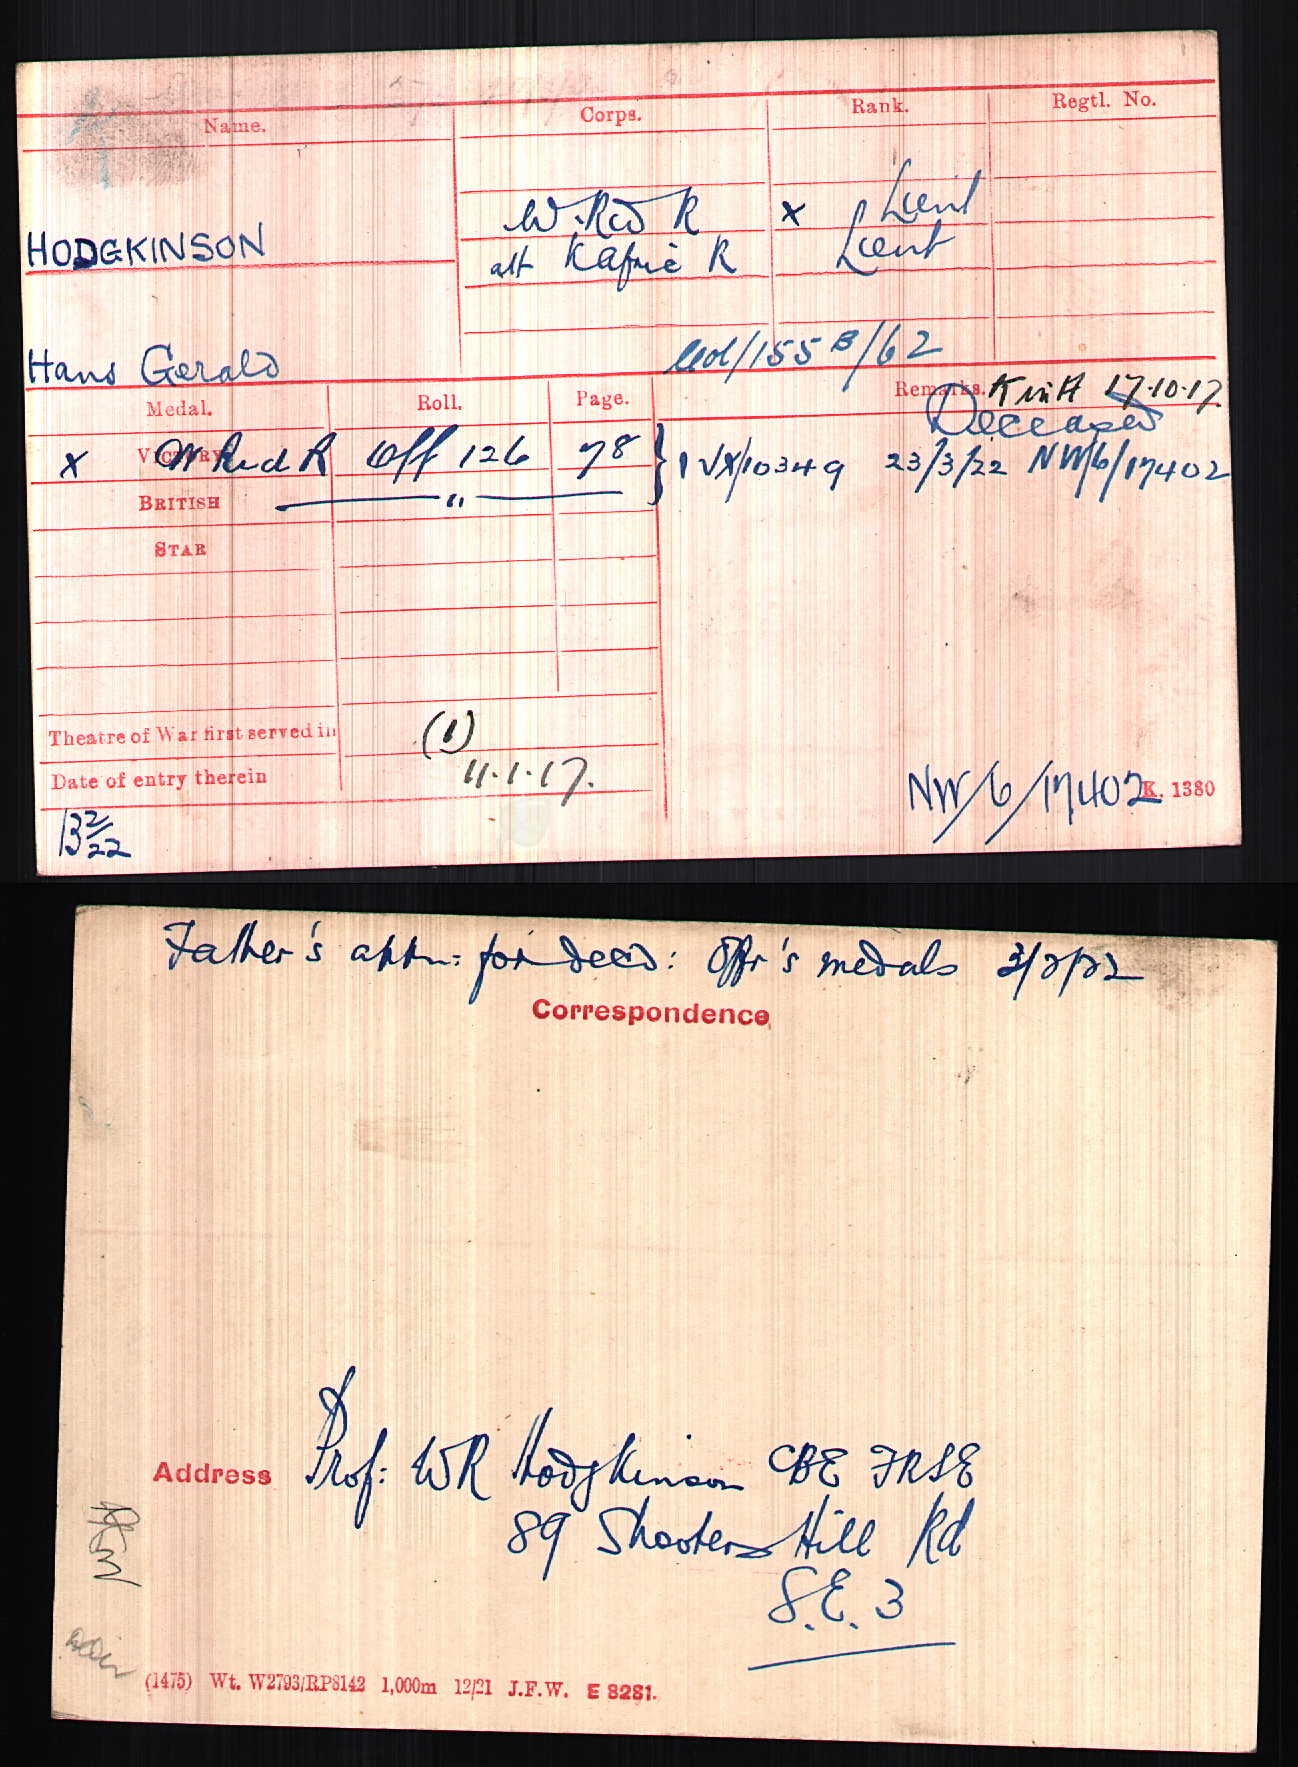 Name. Corps. Rank. Regtl. No.
HODGKINSON
W. Rid R X Lieut
att Kaffir R Lieut
Hans Gerald
Col/155 B/62
Medal. Roll. Page. Remarks. K in A 17.10.17.
Deceased
X VICTORY W Rid R Off 126 78 } 1 VX/10349 23/3/22 NW/6/17402
BRITISH — " —
STAR
Theatre of War first served in (1)
Date of entry therein 11.1.17.
NW/6/17402 K. 1380
B 2/22
Father's appn: for decd: Offr's medals 3/2/22
Correspondence
Address Prof: WR Hodgkinson CBE FRSE
89 Shooters Hill Rd
S.E. 3
(1475) Wt. W2793/RP8142 1,000m 12/21 J.F.W. E 8281.